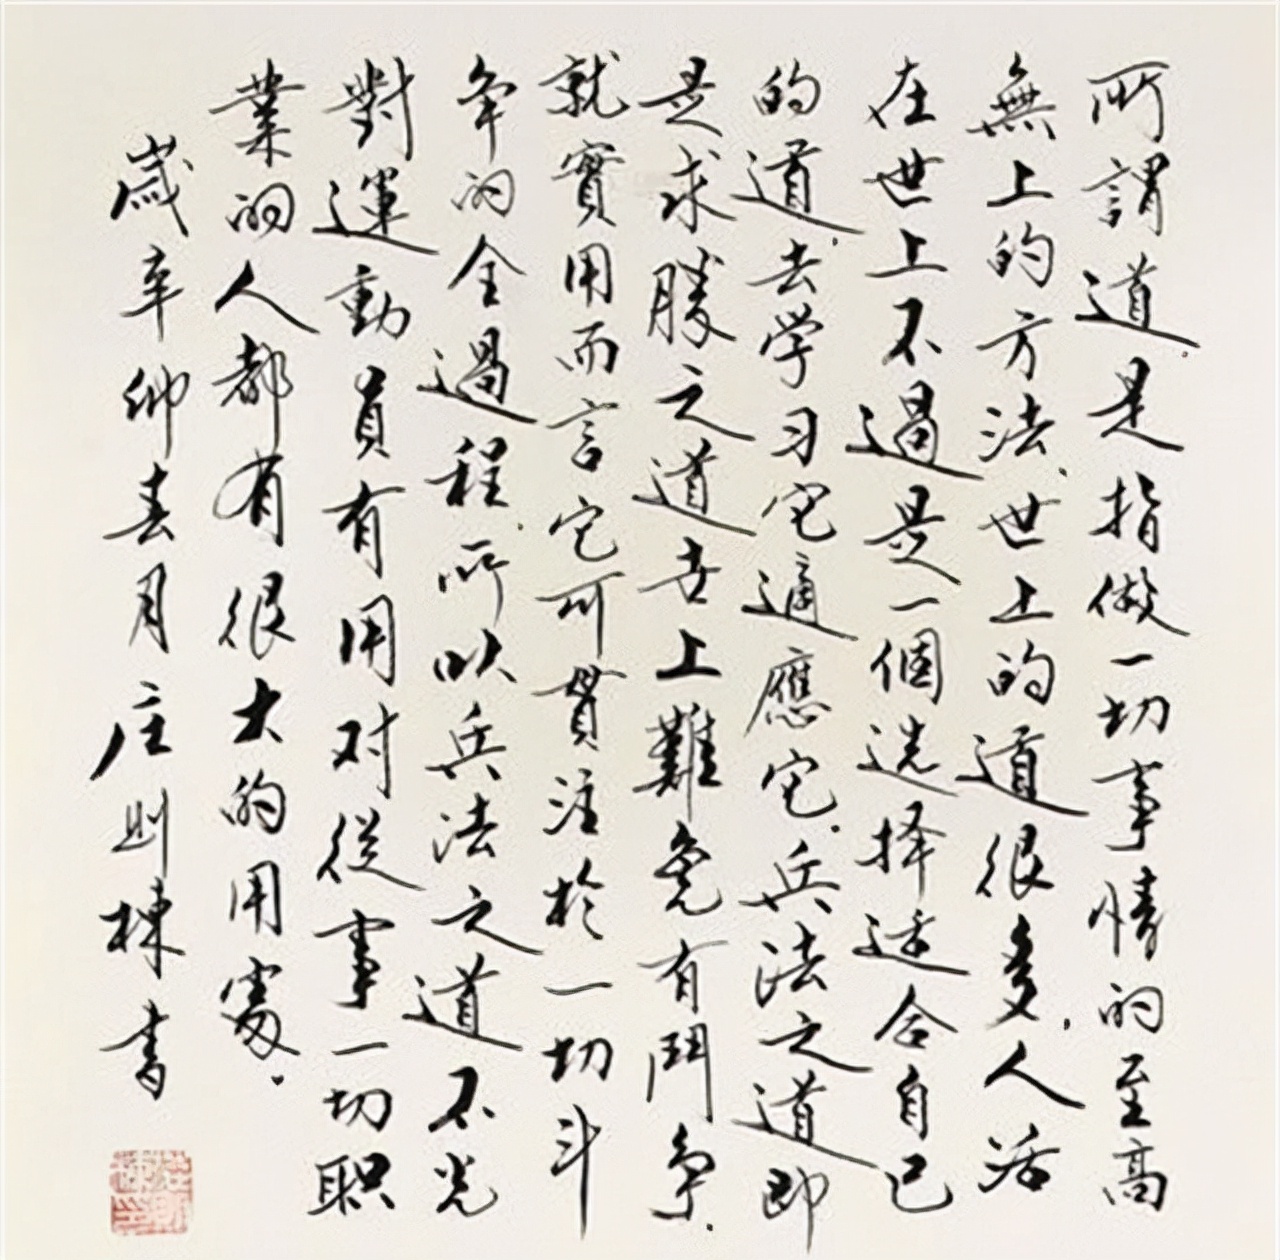 所謂道是指做一切事情的至高
無上的方法世上的道很多人活
在世上不過是一個选择适合自己
的道去学习它適應它兵法之道即
是求勝之道世上難免有鬥争
就實用而言它可貫注於一切斗
争的全過程所以兵法之道不光
對運動員有用对從事一切职
業的人都有很大的用處
歲辛卯春月庄则棟書